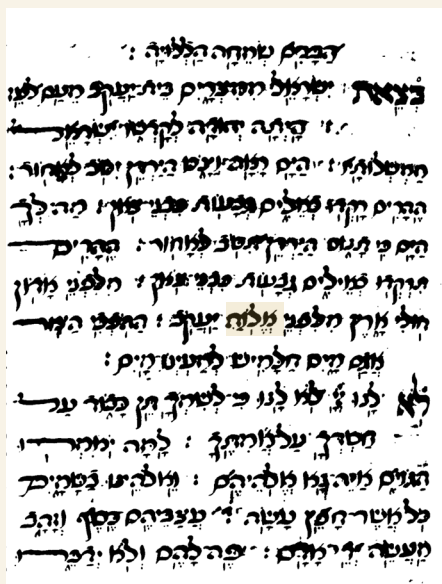 הבנים שמחה הללויה :
בצאת ישראל ממצרים בית יעקב מעם לעז
היתה יהודה לקדשו ישראל
ממשלותיו : הים ראה וינס הירדן יסב לאחור :
ההרים רקדו כאילים גבעות כבני צאן : מה לך
הים כי תנוס הירדן תסב לאחור : ההרים
תרקדו כאילים גבעות כבני צאן : מלפני אדון
חולי ארץ מלפני אלוה יעקב : ההפכי הצור
אגם מים חלמיש למעינו מים :
לא לנו יי לא לנו כי לשמך תן כבוד על
חסדך על אמתך : למה יאמרו
הגוים איה נא אלהיהם : ואלהינו בשמים
כל אשר חפץ עשה : עצביהם כסף וזהב
מעשה ידי אדם : פה להם ולא ידברו